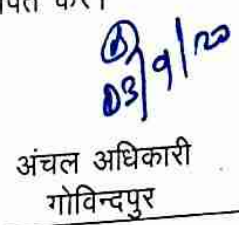 करें।
03/9/20
अंचल अधिकारी
गोविन्दपुर